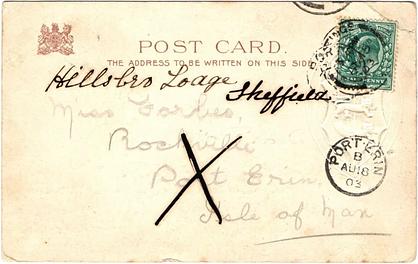 POST CARD.
THE ADDRESS TO BE WRITTEN ON THIS SIDE
Hillsbro Lodge,
Sheffield
Miss Forbes,
Rockville
Port Erin,
Isle of Man
X
PORT-ERIN
B
AU 18
03